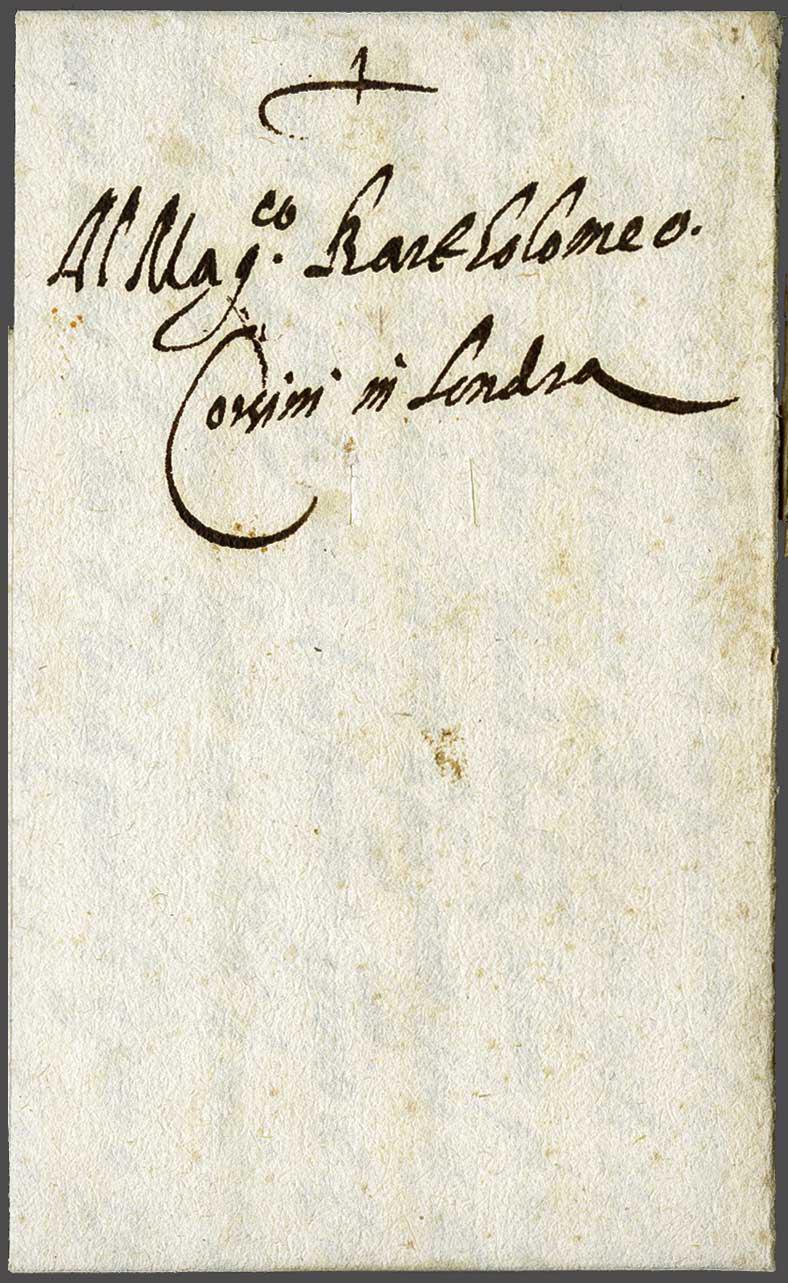 Al Mag.co Bartholomeo.
Corsini in Londra